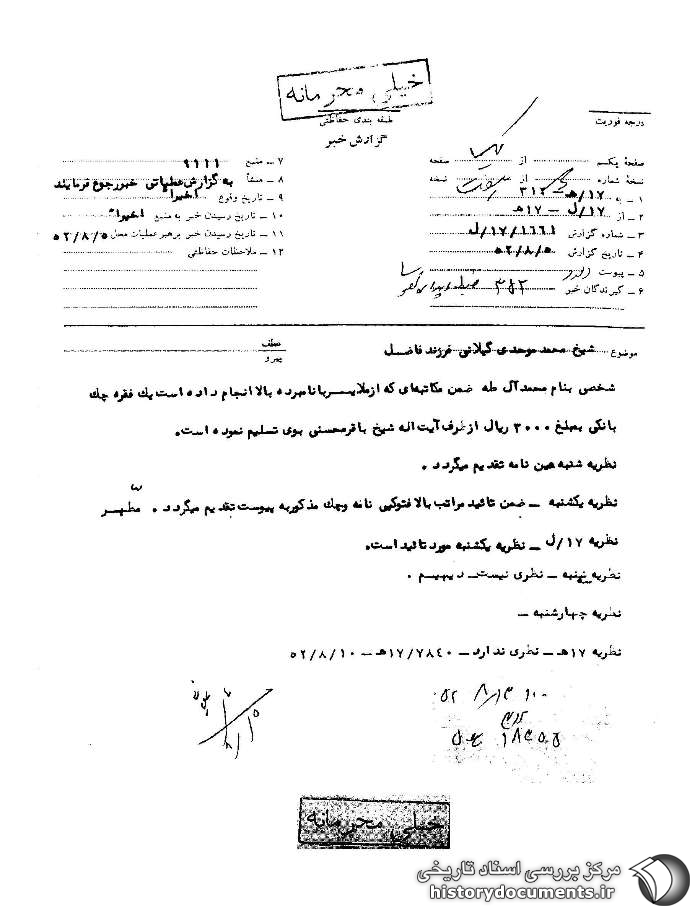 خیلی محرمانه
طبقه بندی حفاظتی
گزارش خبر
درجه فوریت
صفحهٔ یکم از صفحه
نسخهٔ شماره از نسخه
۱ – به ۱۷/هـ – ۳۱۲
۲ – از ۱۷/ل – ۱۷هـ
۳ – شماره گزارش ۱۷/۱۶۶۱/ل
۴ – تاریخ گزارش ۵۲/۸/۵
۵ – پیوست دارد
۶ – گیرندگان خبر ۳۸۲
۷ – منبع ۹۱۱۱
۸ – منشأ به گزارش عملیاتی خبر رجوع فرمایند
۹ – تاریخ وقوع اخیراً
۱۰ – تاریخ رسیدن خبر به منبع اخیراً
۱۱ – تاریخ رسیدن خبر برهبر عملیات محل ۵۲/۸/۵
۱۲ – ملاحظات حفاظتی
موضوع شیخ محمد موحدی گیلانی فرزند فاضل
عطف
پیرو
شخصی بنام محمد آل طه ضمن مکاتبه‌ای که از ملایر با نامبرده بالا انجام داده است یک فقره چک
بانکی بمبلغ ۳۰۰۰ ریال از طرف آیت اله شیخ باقر محسنی بوی تسلیم نموده است.
نظریه شنبه عین نامه تقدیم میگردد.
نظریه یکشنبه – ضمن تائید مراتب بالا فتوکپی نامه وچک مذکور به پیوست تقدیم میگردد. مطهر
نظریه ۱۷/ل – نظریه یکشنبه مورد تائید است.
نظریه سه‌شنبه – نظری نیست – دیهیم.
نظریه چهارشنبه –
نظریه ۱۷هـ – نظری ندارد – ۱۷/۷۸۴۰هـ – ۵۲/۸/۱۰
خیلی محرمانه
مرکز بررسی اسناد تاریخی
historydocuments.ir